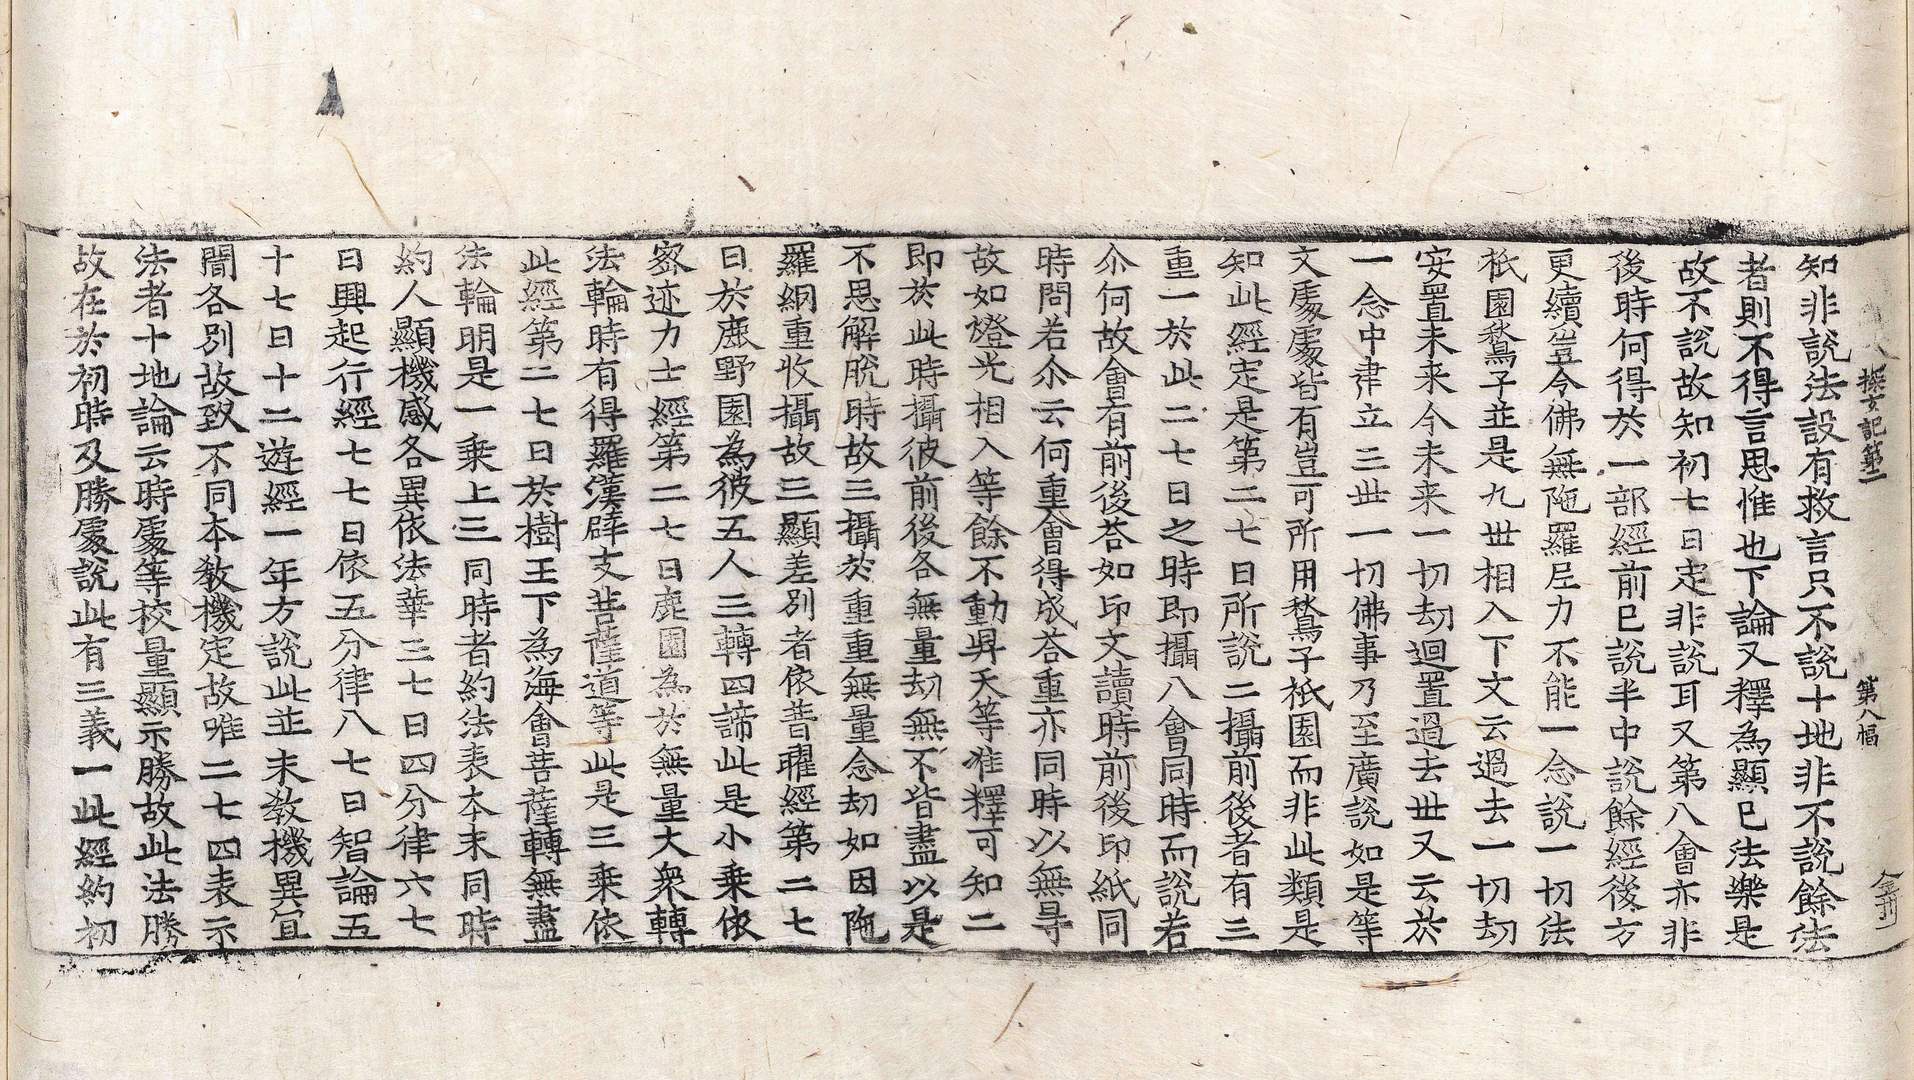 探玄記第二　第八幅　金刊
知非說法設有救言只不說十地非不說餘法
者則不得言思惟也下論又釋為顯已法樂是
故不說故知初七日定非說耳又第八會亦非
後時何得於一部經前已說半中說餘經後方
更續豈令佛無陁羅尼力不能一念說一切法
祇園鶖子並是九世相入下文云過去一切劫
安置未来今未来一切劫迴置過去世又云於
一念中建立三世一切佛事乃至廣說如是等
文處處皆有豈可所用鶖子祇園而非此類是
知此經定是第二七日所說二攝前後者有三
重一於此二七日之時即攝八會同時而說若
尒何故會有前後荅如印文讀時前後印紙同
時問若尒云何重會得成荅重亦同時以無㝵
故如燈光相入等餘不動昇天等准釋可知二
即於此時攝彼前後各無量劫無不皆盡以是
不思解脫時故三攝於重重無量念劫如因陁
羅網重收攝故三顯差別者依普曜經第二七
日於鹿野園為彼五人三轉四諦此是小乗依
密迹力士經第二七日鹿園為於無量大衆轉
法輪時有得羅漢辟支菩薩道等此是三乗依
此經第二七日於樹王下為海會菩薩轉無盡
法輪明是一乗上三同時者約法表本末同時
約人顯機感各異依法華三七日四分律六七
日興起行經七七日依五分律八七日智論五
十七日十二遊經一年方說此並末教機異宜
聞各別故致不同本教機定故唯二七四表示
法者十地論云時處等校量顯示勝故此法勝
故在於初時及勝處說此有三義一此經約初